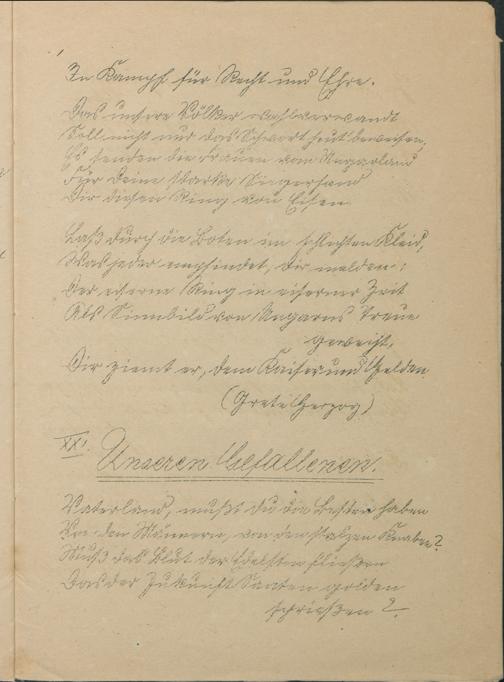 In Kampf für Recht und Ehre.
Das unsere Völker wahlverwandt
Soll nicht nur das Schwert heut' beweisen,
Es senden die Frauen vom Ungarland
Für Deine starke Siegerhand
Dir diesen Ring von Eisen
Laß durch die Boten im schlichten Kleid,
Was jeder empfindet, Dir melden:
Der eiserne Ring in eiserner Zeit
Als Sinnbild von Ungarns Treue
geweiht,
Dir ziemt er, dem Kaiser und Helden
(Grete Herzog)
XX.
Unseren Gefallenen.
Vaterland, mußt du die Besten haben
Von den Männern, von den stolzen Knaben?
Muß das Blut der Edelsten fließen
Das der Zukunft Saaten golden
schießen?